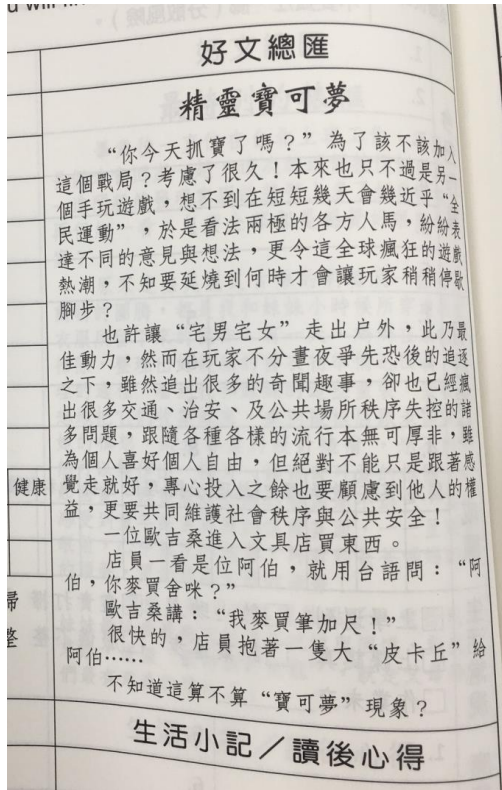 好文總匯
精靈寶可夢
“你今天抓寶了嗎？”為了該不該加入
這個戰局？考慮了很久！本來也只不過是另一
個手玩遊戲，想不到在短短幾天會幾近乎“全
民運動”，於是看法兩極的各方人馬，紛紛表
達不同的意見與想法，更令這全球瘋狂的遊戲
熱潮，不知要延燒到何時才會讓玩家稍稍停歇
腳步？
也許讓“宅男宅女”走出户外，此乃最
佳動力，然而在玩家不分晝夜爭先恐後的追逐
之下，雖然追出很多的奇聞趣事，卻也已經瘋
出很多交通、治安、及公共場所秩序失控的諸
多問題，跟隨各種各樣的流行本無可厚非，雖
為個人喜好個人自由，但絕對不能只是跟著感
覺走就好，專心投入之餘也要顧慮到他人的權
益，更要共同維護社會秩序與公共安全！
一位歐吉桑進入文具店買東西。
店員一看是位阿伯，就用台語問：“阿
伯，你麥買舍咪？”
歐吉桑講：“我麥買筆加尺！”
很快的，店員抱著一隻大“皮卡丘”給
阿伯……
不知道這算不算“寶可夢”現象？
生活小記／讀後心得
健康